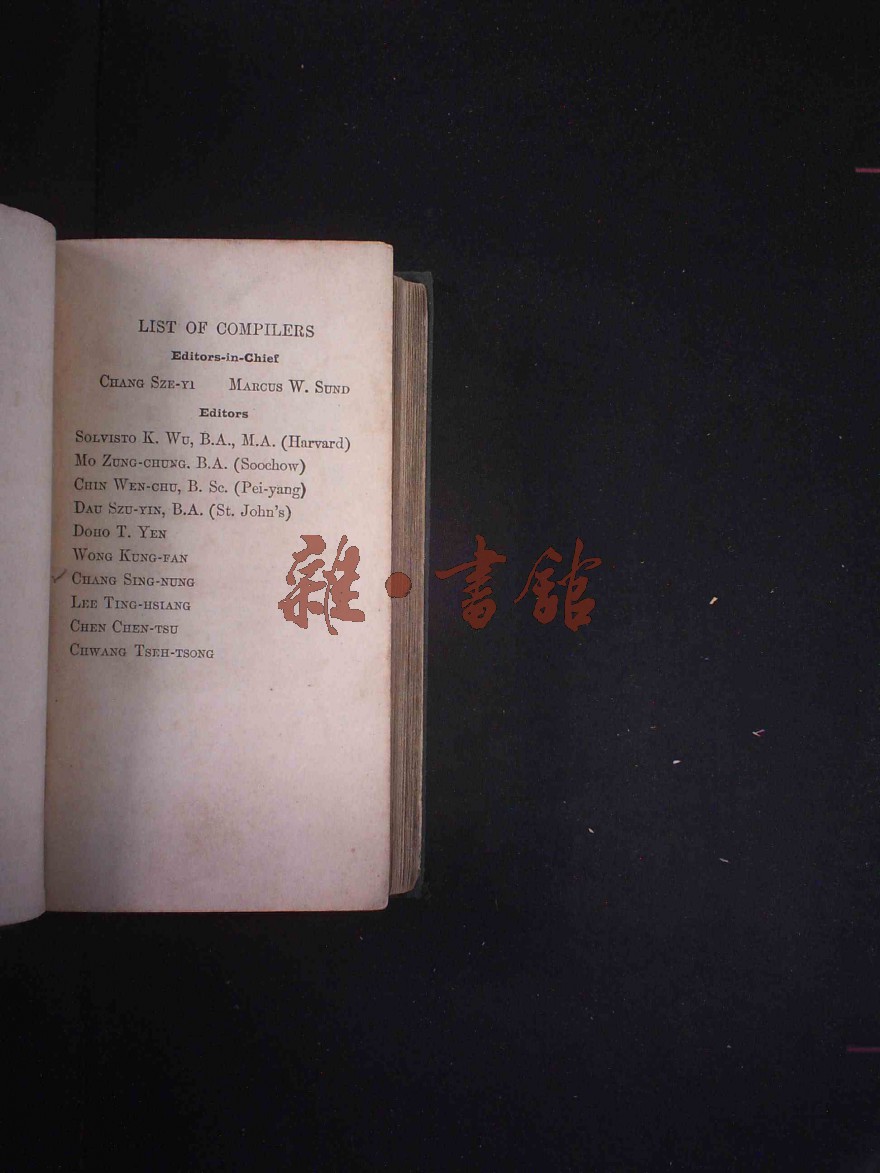 LIST OF COMPILERS
Editors-in-Chief
CHANG SZE-YI MARCUS W. SUND
Editors
SOLVISTO K. WU, B.A., M.A. (Harvard)
MO ZUNG-CHUNG. B.A. (Soochow)
CHIN WEN-CHU, B. Sc. (Pei-yang)
DAU SZU-YIN, B.A. (St. John's)
DOHO T. YEN
WONG KUNG-FAN
CHANG SING-NUNG
LEE TING-HSIANG
CHEN CHEN-TSU
CHWANG TSEH-TSONG
雜·書館